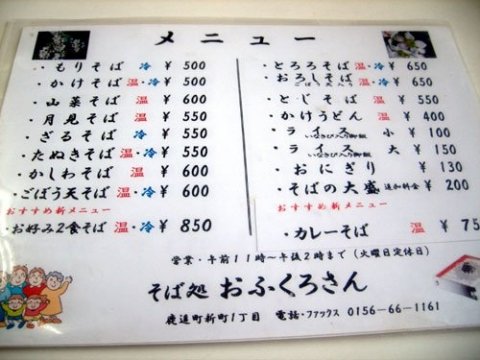 メニュー
・もりそば 冷 ¥ 500
・かけそば 温・冷 ¥ 500
・山菜そば 温 ¥ 600
・月見そば 温 ¥ 550
・ざるそば 冷 ¥ 550
・たぬきそば 温・冷 ¥ 600
・かしわそば 温 ¥ 600
・ごぼう天そば 温・冷 ¥ 600
おすすめ新メニュー
・お好み2食そば 温・冷 ¥ 850
・とろろそば 温・冷 ¥ 650
・おろしそば 温・冷 ¥ 650
・とじそば 温 ¥ 550
・かけうどん 温 ¥ 400
・ライス 小 ¥ 100
・ライス 大 ¥ 150
・おにぎり ¥ 130
・そばの大盛 追加料金 ¥ 200
おすすめ新メニュー
・カレーそば 温 ¥ 75
営業・午前11時〜午後2時まで（火曜日定休日）
そば処 おふくろさん
鹿追町新町1丁目 電話・ファックス 0156-66-1161